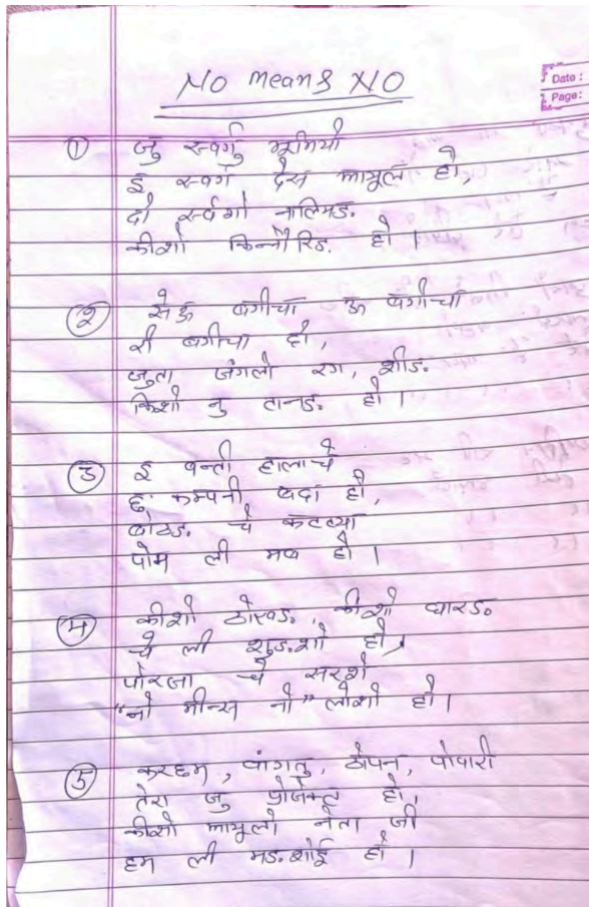 No means NO
Date :
Page :
① जु स्वर्गु भूमियो
इ स्वर्ग देस मामूल हो,
दो स्वर्गो नालिमङ.
कीशो किन्नौरिङ. हो ।
② सेऊ बगीचा ऊ बगीचा
री बगीचा हो,
जुता जंगलो रग, शीङ.
किशो नु टानङ. हो ।
③ इ बन्ती हालाचे
छु कम्पनी बदा हो,
बोठङ. चे कटच्या
पोम ली मच हो ।
④ कीशो ठोखङ., कीशो धारङ.
चे ली शुङ.शो हो,
पोरजा चे सरशे
"नो मीन्स नो" लोशो हो ।
⑤ करछम, वांगतु, ठोपन, पोवारी
तेरा जु प्रोजेक्ट हो,
कीशो मामूलो नेता जी
हम ली मङ.शोई हो ।